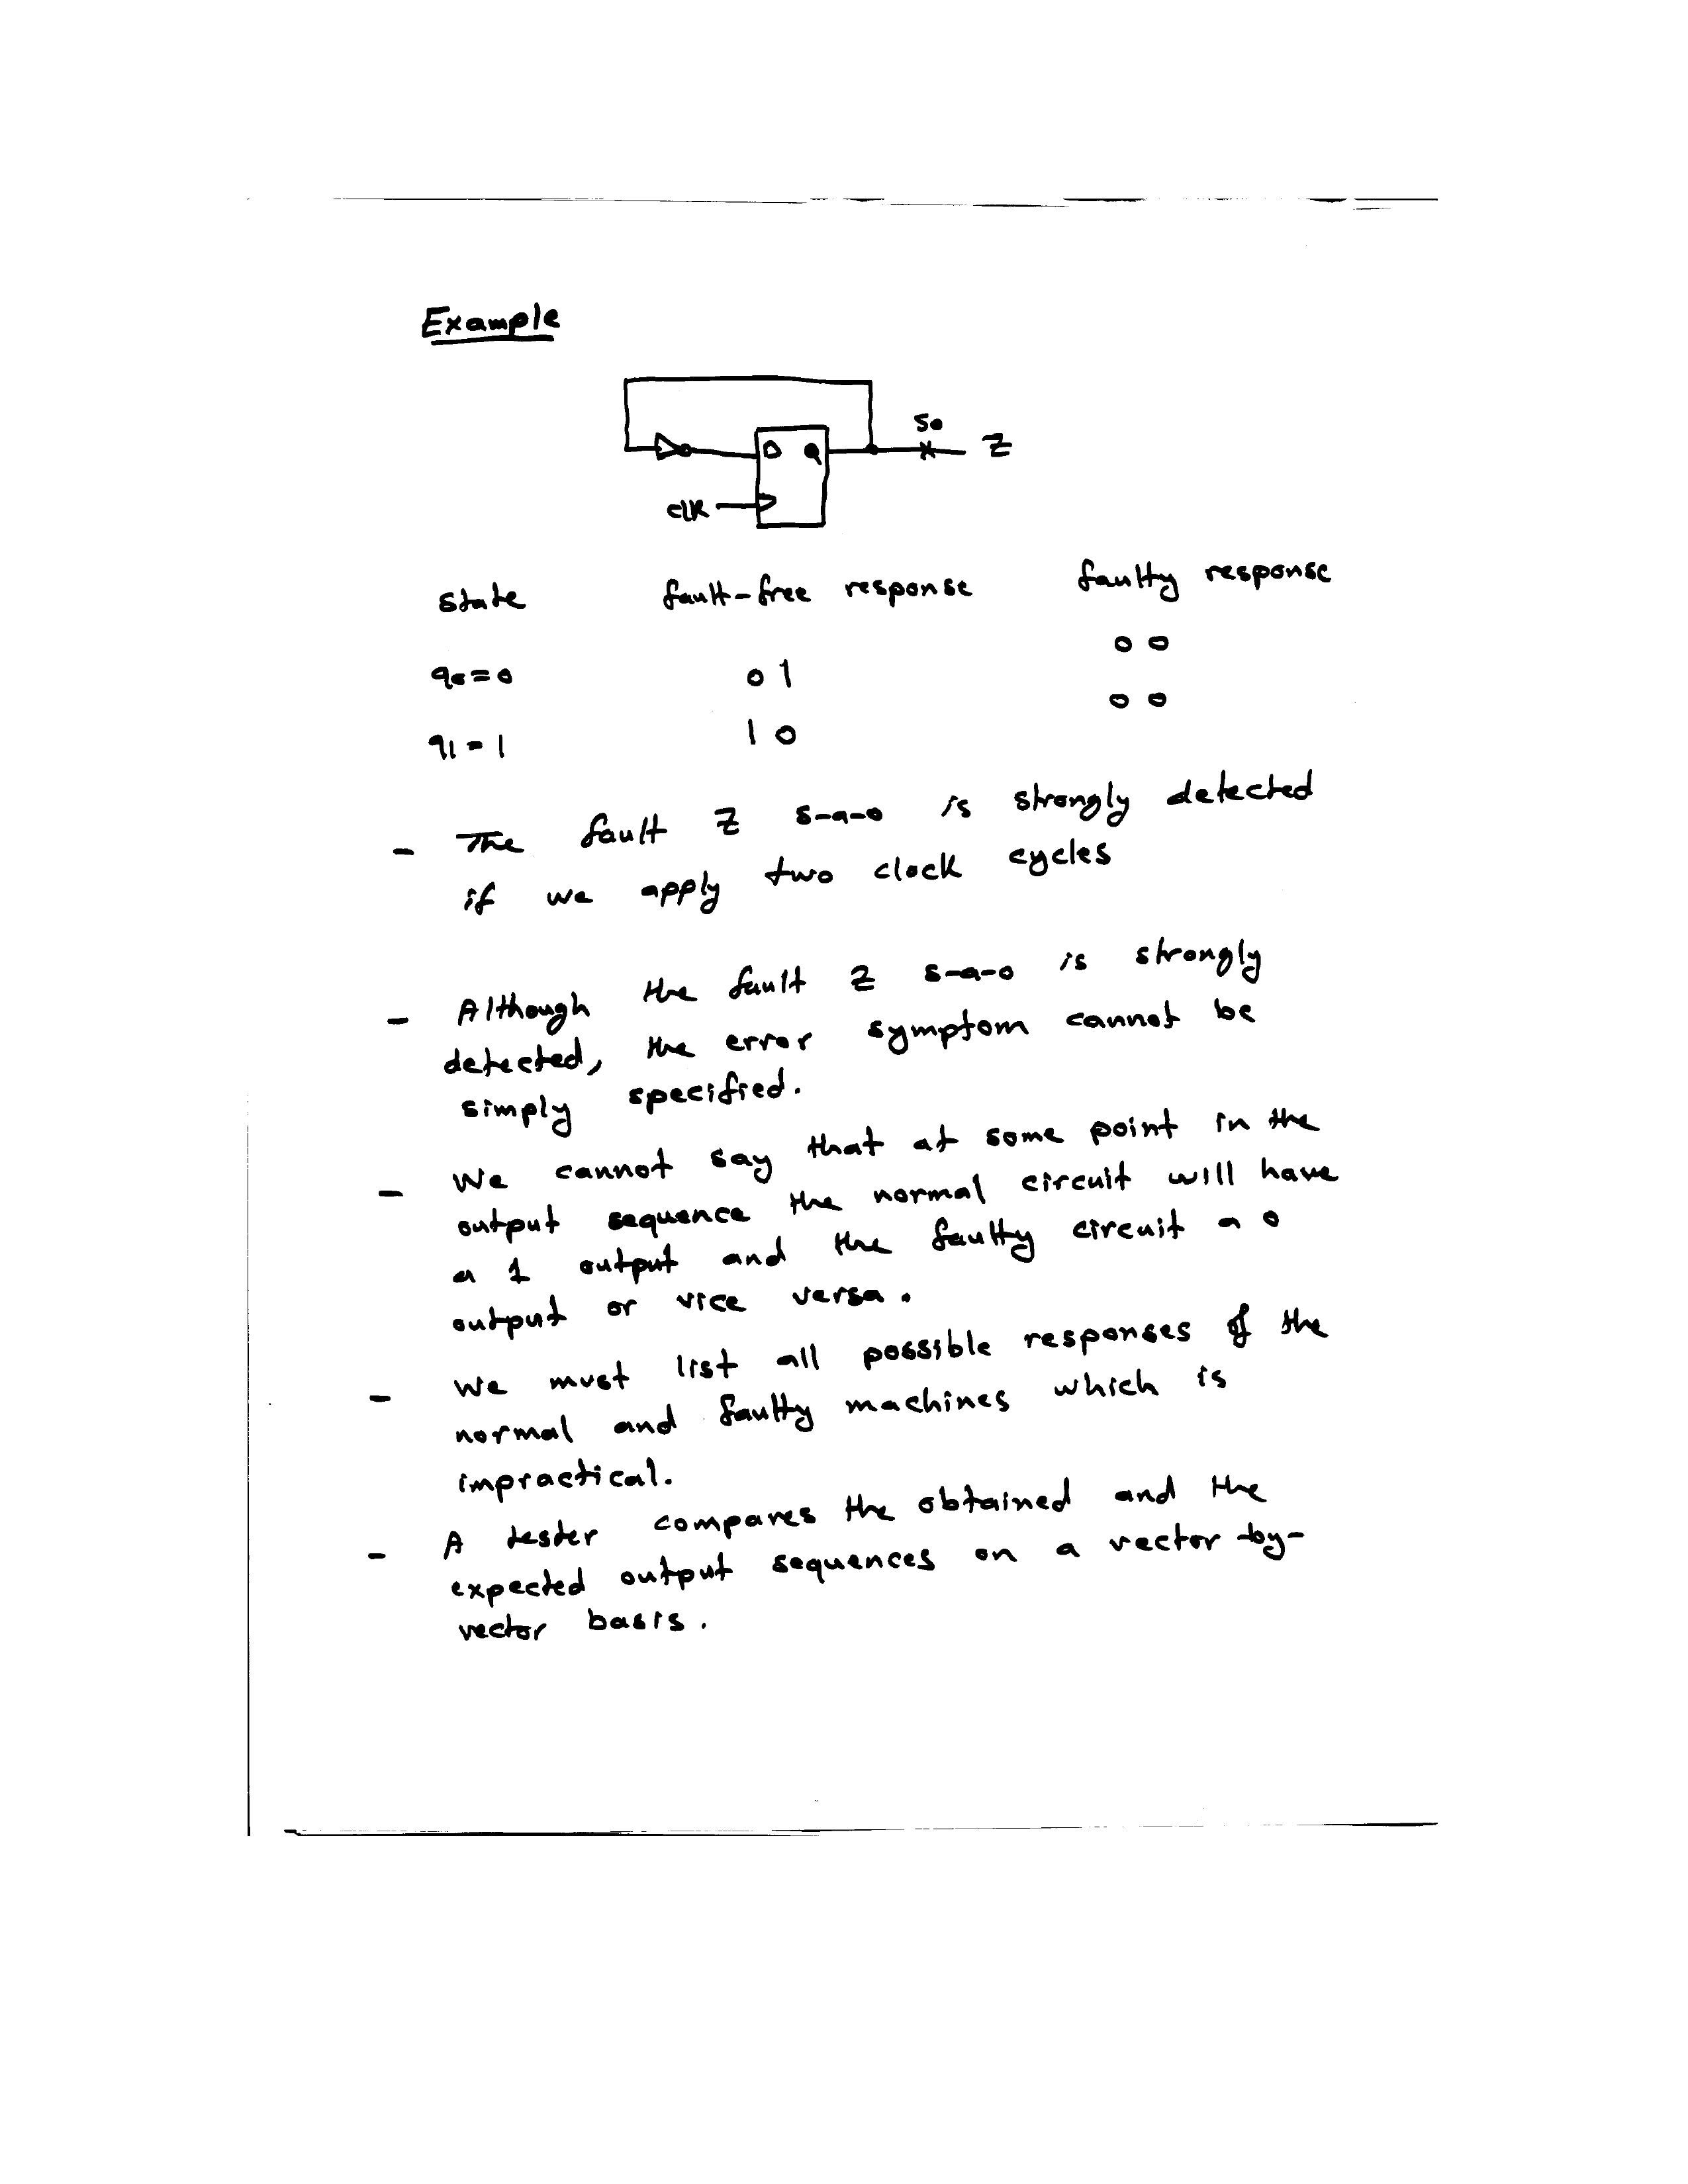 Example
s0
D Q Z
clk
state fault-free response faulty response
q0=0 01 00
q1=1 10 00
- The fault Z s-a-0 is strongly detected
if we apply two clock cycles
- Although the fault Z s-a-0 is strongly
detected, the error symptom cannot be
simply specified.
- We cannot say that at some point in the
output sequence the normal circuit will have
a 1 output and the faulty circuit a 0
output or vice versa.
- We must list all possible responses of the
normal and faulty machines which is
impractical.
- A tester compares the obtained and the
expected output sequences on a vector-by-
vector basis.